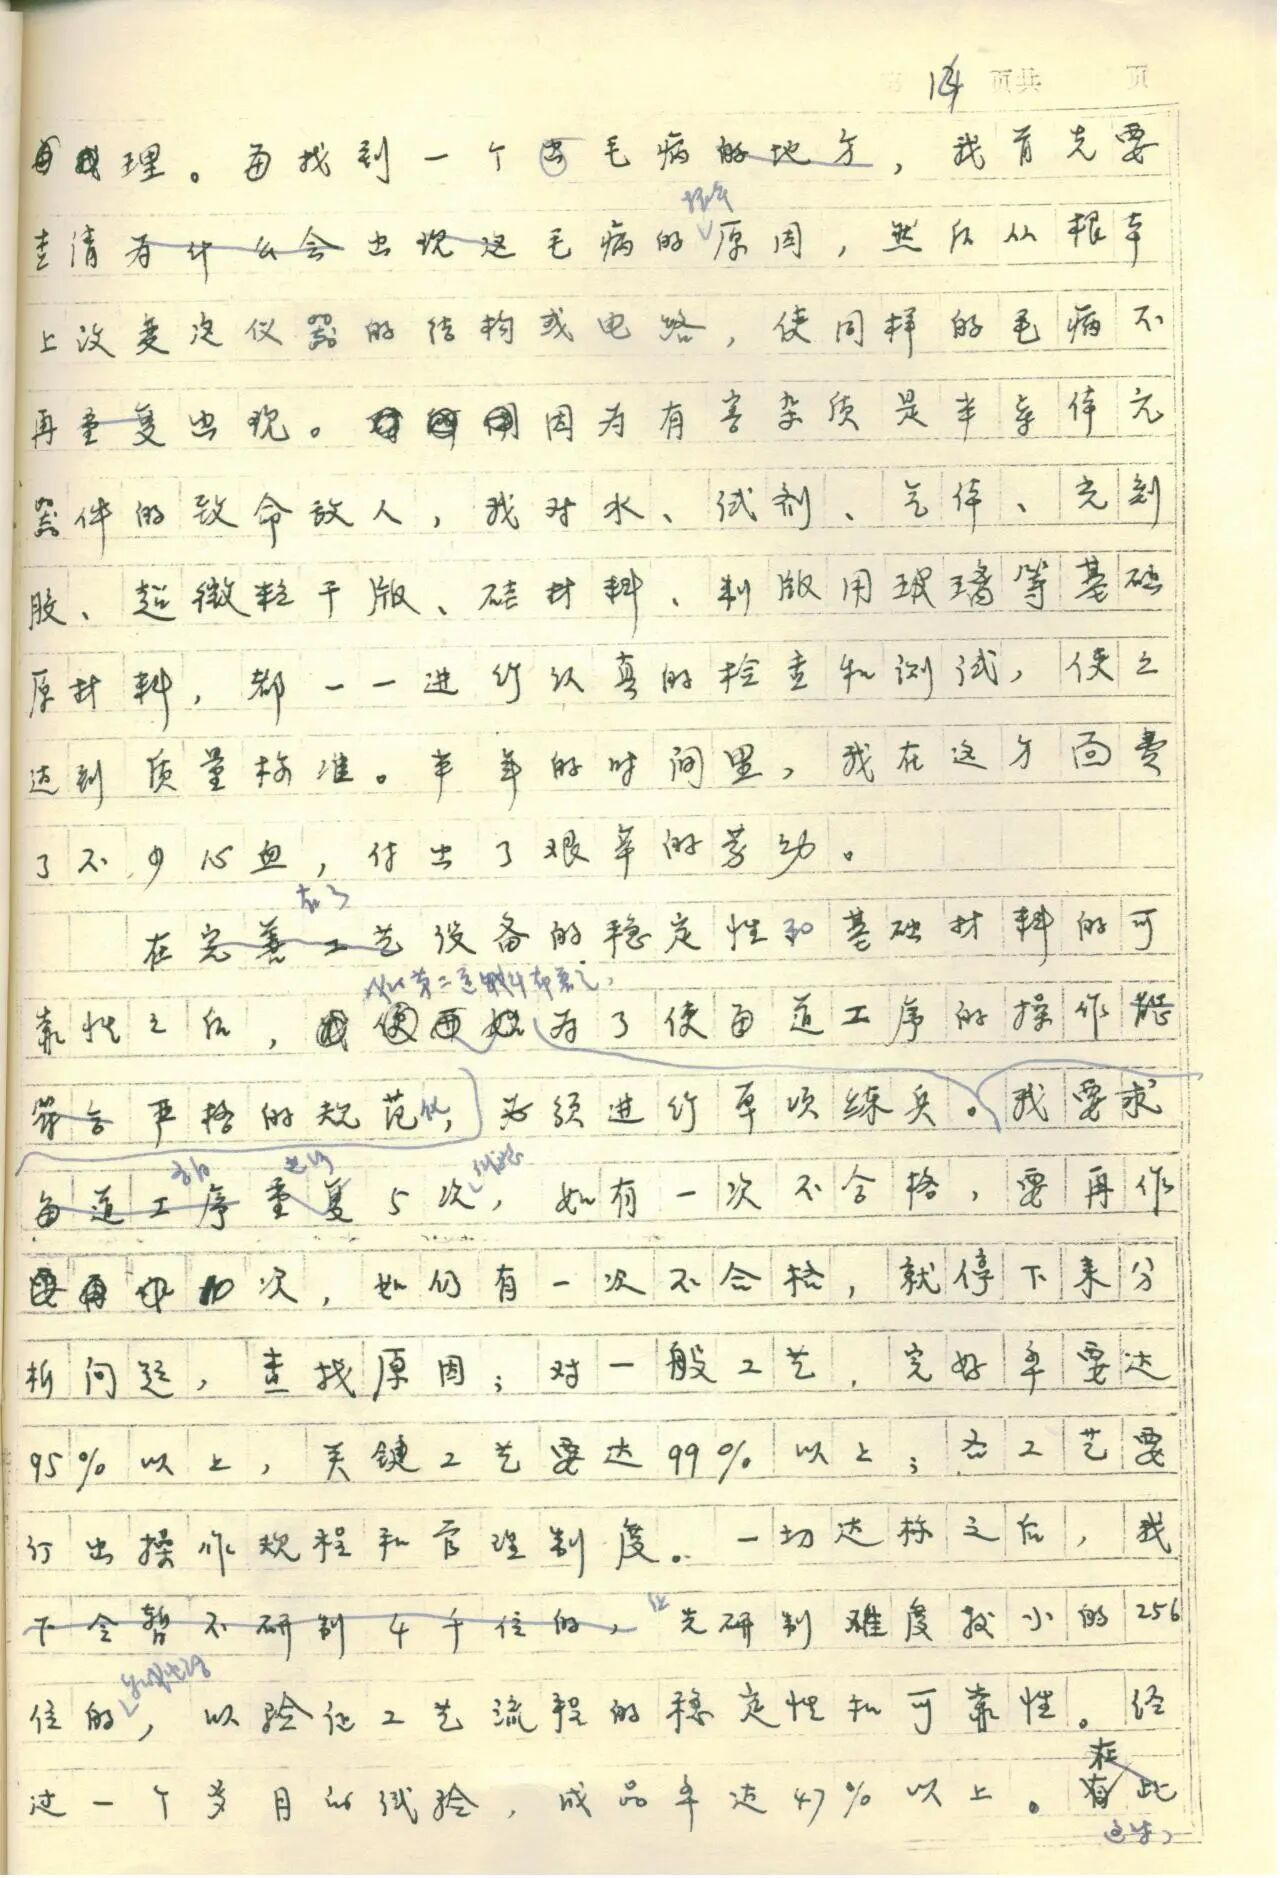 第14页共 页
理。每找到一个出毛病的地方，我首先要
查清为什么会出现这毛病的原因，然后从根本
上改变这仪器的结构或电路，使同样的毛病不
再重复出现。因为有害杂质是半导体元
器件的致命敌人，我对水、试剂、气体、光刻
胶、超微粒干版、硅材料、制版用玻璃等基础
原材料，都一一进行认真的检查和测试，使之
达到质量标准。半年的时间里，我在这方面费
了不少心血，付出了艰辛的劳动。
有了
在完善工艺设备的稳定性和基础材料的可
靠性之后，为了使每道工序的操作能
符合严格的规范化，必须进行单项练兵。我要求
每道工序重复5次，如有一次不合格，要再作
次，如仍有一次不合格，就停下来分
析问题，查找原因；对一般工艺，完好率要达
95%以上，关键工艺要达99%以上；各工艺要
订出操作规程和管理制度。一切达标之后，我
下令暂不研制4千位的，先研制难度较小的256
位的，以验证工艺流程的稳定性和可靠性。经
过一个多月的试验，成品率达47%以上。有此
在